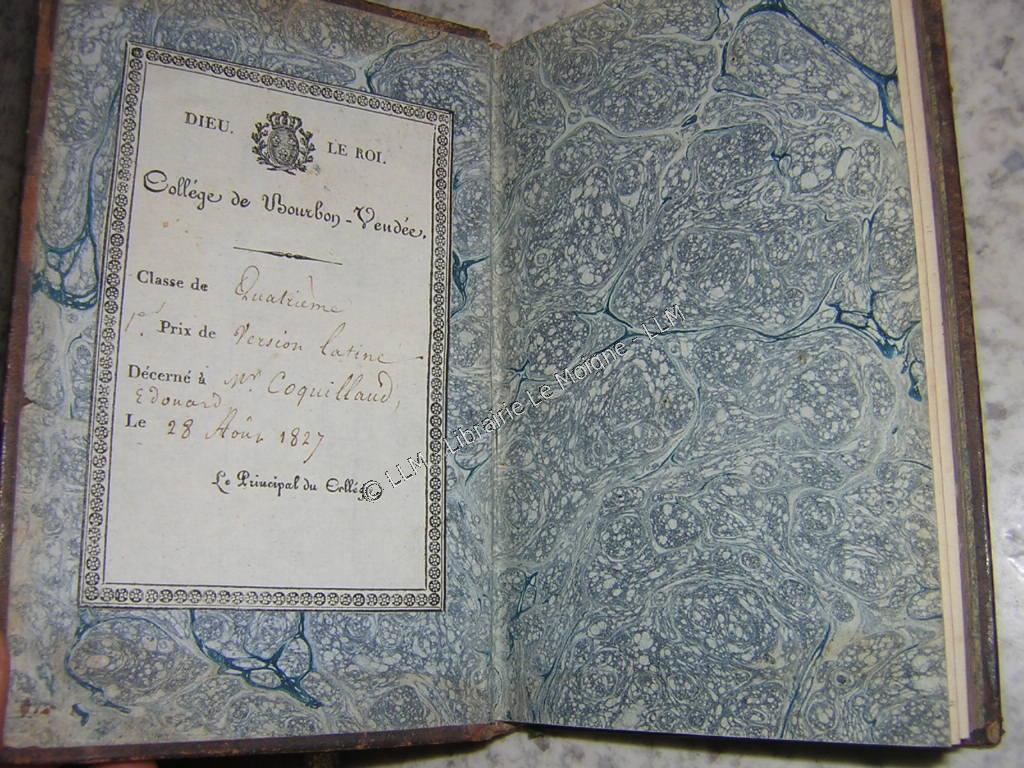 DIEU. LE ROI.
Collége de Bourbon-Vendée.
Classe de Quatrième
1er Prix de Version latine
Décerné à Mr Coquilland,
Edouard
Le 28 Août 1827
Le Principal du Collége
© LLM - Librairie Le Moigne - LLM